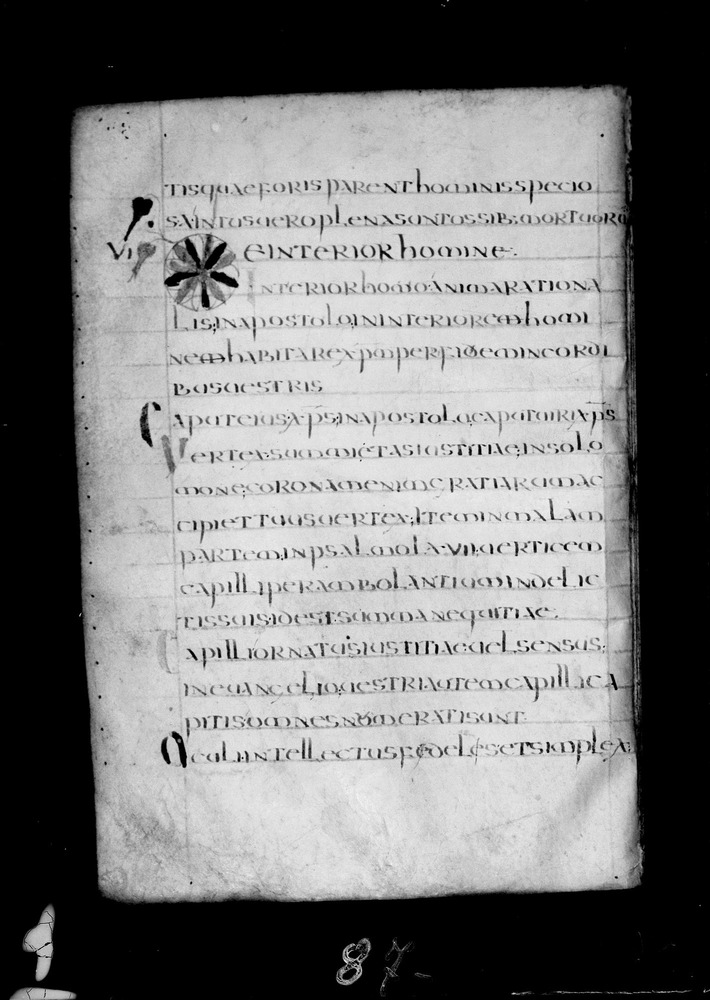 tisquaeforisparenthominisspecio
saintusueroplenasuntossibmortuorū
VI DEINTERIORhomine.
Interiorhomoanimarationa
lis;inapostoloininterioremhomi
nemhabitarexpmperfidemincordi
busuestris
Caputeiusxps;inapostolo,caputuirixps
Vertex,summitasiustitiae,insolo
mone,coronamenimgratiarumac
cipiettuusuertex;Iteminmalam
partem,inpsalmolxvii,uerticem
capilliperambolantiumindelic
tissuisidestsummanequitiae.
Capilliornatusiustitiaeuelsensus;
ineuangelio,uestriautemcapillica
pitisomnesnumeratisunt
Oculiintellectusfidelisetsimplex
87